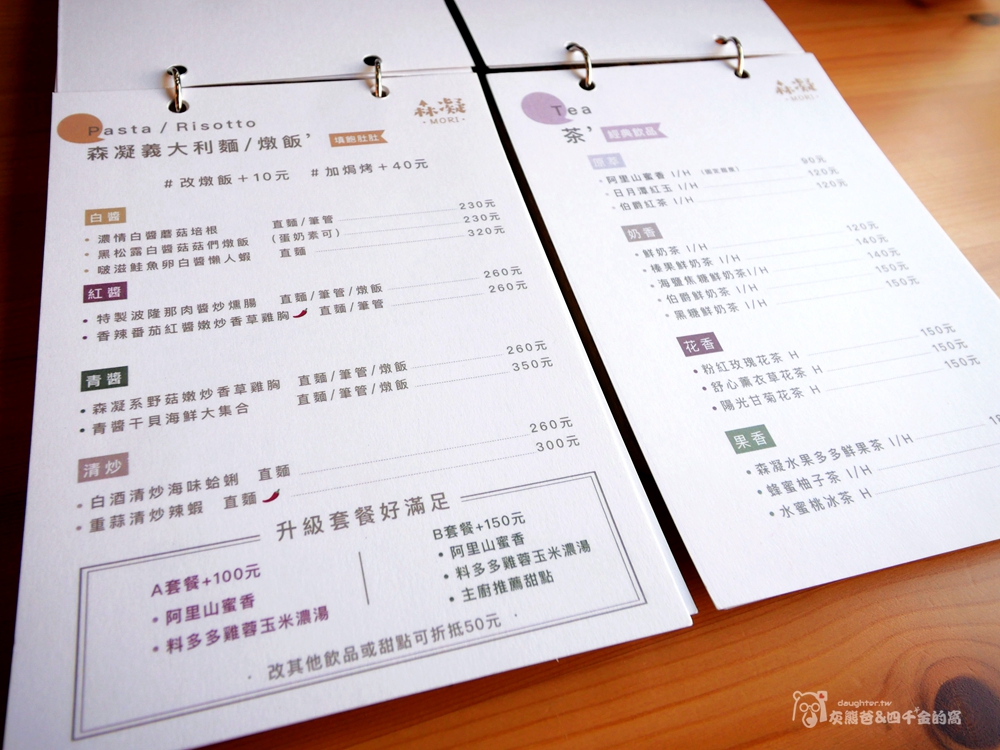 Pasta / Risotto
森凝義大利麵/燉飯’
填飽肚肚
森凝
·MORI·
# 改燉飯+10元 # 加焗烤+40元
白醬
• 濃情白醬蘑菇培根 直麵/筆管 230元
• 黑松露白醬菇菇們燉飯 (蛋奶素可) 230元
• 啵滋鮭魚卵白醬懶人蝦 直麵 320元
紅醬
• 特製波隆那肉醬炒燻腸 直麵/筆管/燉飯 260元
• 香辣番茄紅醬嫩炒香草雞胸 直麵/筆管 260元
青醬
• 森凝系野菇嫩炒香草雞胸 直麵/筆管/燉飯 260元
• 青醬干貝海鮮大集合 直麵/筆管/燉飯 350元
清炒
• 白酒清炒海味蛤蜊 直麵 260元
• 重蒜清炒辣蝦 直麵 300元
升級套餐好滿足
A套餐+100元
• 阿里山蜜香
• 料多多雞蓉玉米濃湯
B套餐+150元
• 阿里山蜜香
• 料多多雞蓉玉米濃湯
• 主廚推薦甜點
改其他飲品或甜點可折抵50元
Tea
茶’
經典飲品
森凝
·MORI·
• 阿里山蜜香 I/H 90元
• 日月潭紅玉 I/H 120元
• 伯爵紅茶 I/H 120元
奶香
• 鮮奶茶 I/H 120元
• 榛果鮮奶茶 I/H 140元
• 海鹽焦糖鮮奶茶I/H 140元
• 伯爵鮮奶茶 I/H 150元
• 黑糖鮮奶茶 I/H 150元
花香
• 粉紅玫瑰花茶 H 150元
• 舒心薰衣草花茶 H 150元
• 陽光甘菊花茶 H 150元
果香
• 森凝水果多多鮮果茶 I/H
• 蜂蜜柚子茶 I/H
• 水蜜桃冰茶 H
daughter.tw
灰熊爸&四千金的窩